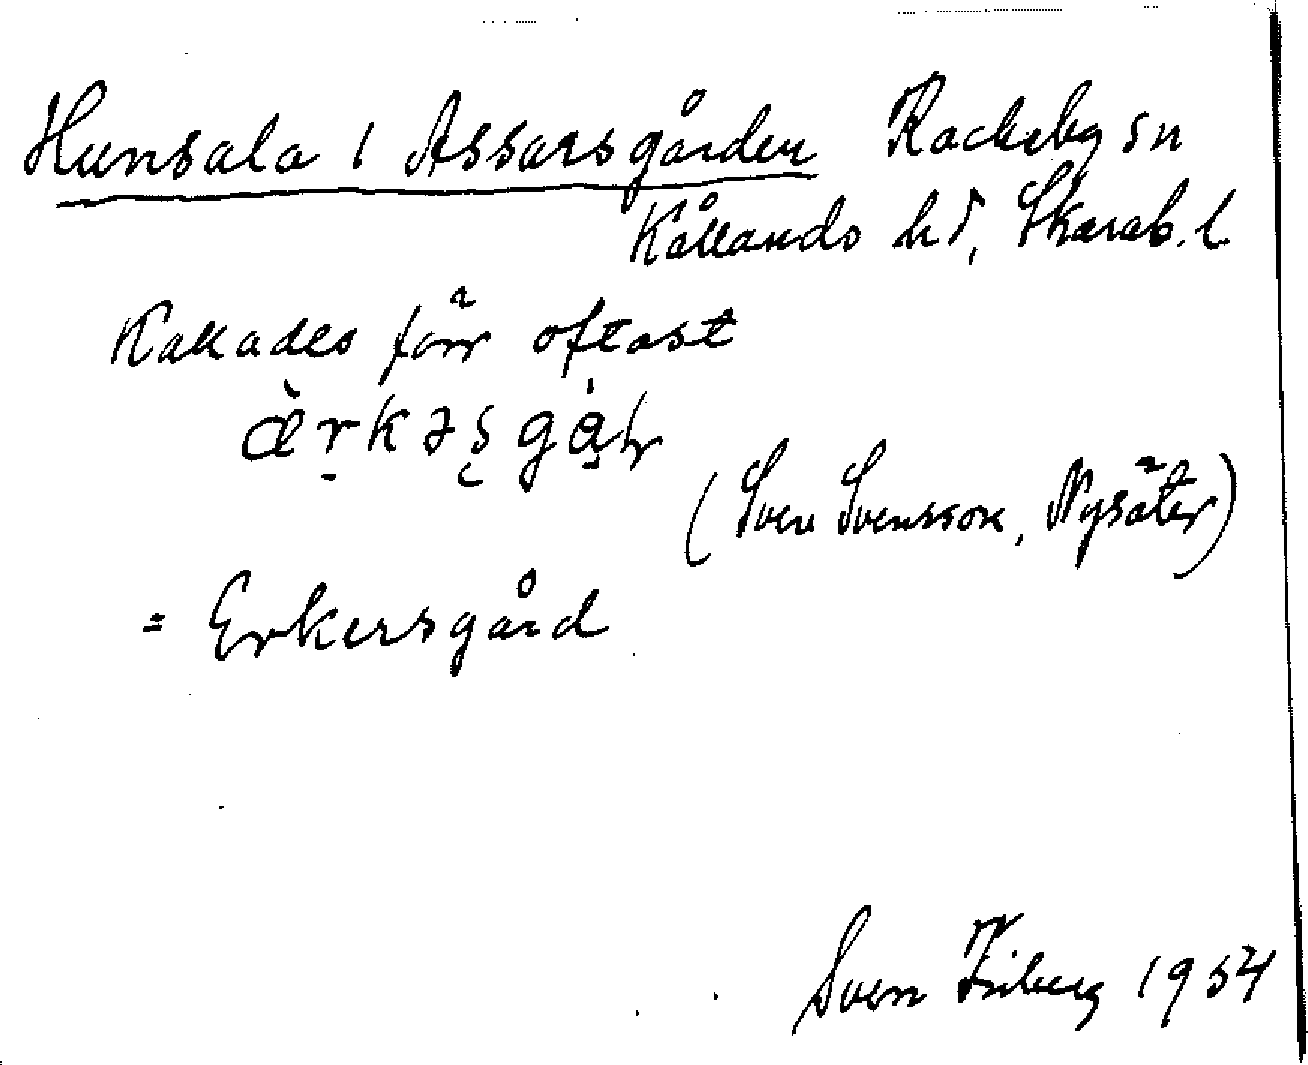 Hunsala 1 Assarsgården Rackeby sn
Kållands hd, Skarab. l
Kallades förr oftast
æ̀r̠kəs̨gá̠ɽ
(Sven Svensson, Nysäter)
= Erkersgård
Sven Friberg 1954